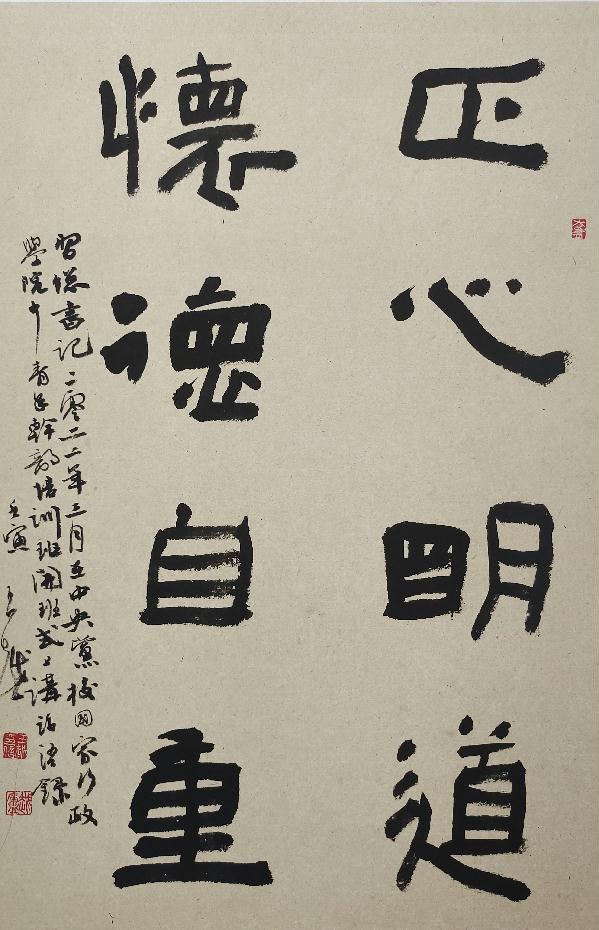 正心明道
懷德自重
習總書記二零二二年三月在中央黨校國家行政
學院中青年幹部培訓班開班式上講話語錄
壬寅